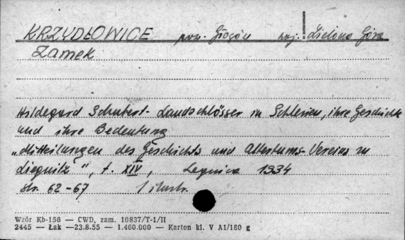 KRZYDŁOWICE pow. Głogów woj. Zielona Góra
Zamek
Hildegard Schubert - Landschlösser in Schlesien, ihre Geschichte
und ihre Bedeutung
„Mitteilungen des Geschichts und Altertums-Vereins zu
Liegnitz", t. XIV, Legnica 1934
str. 62-67 1 ilustr.
Wzór Kb-150 — CWD, zam. 10837/T-1/II
2445 — Łsk —23.8.55 — 1.400.000 — Karton kl. V A1/180 g